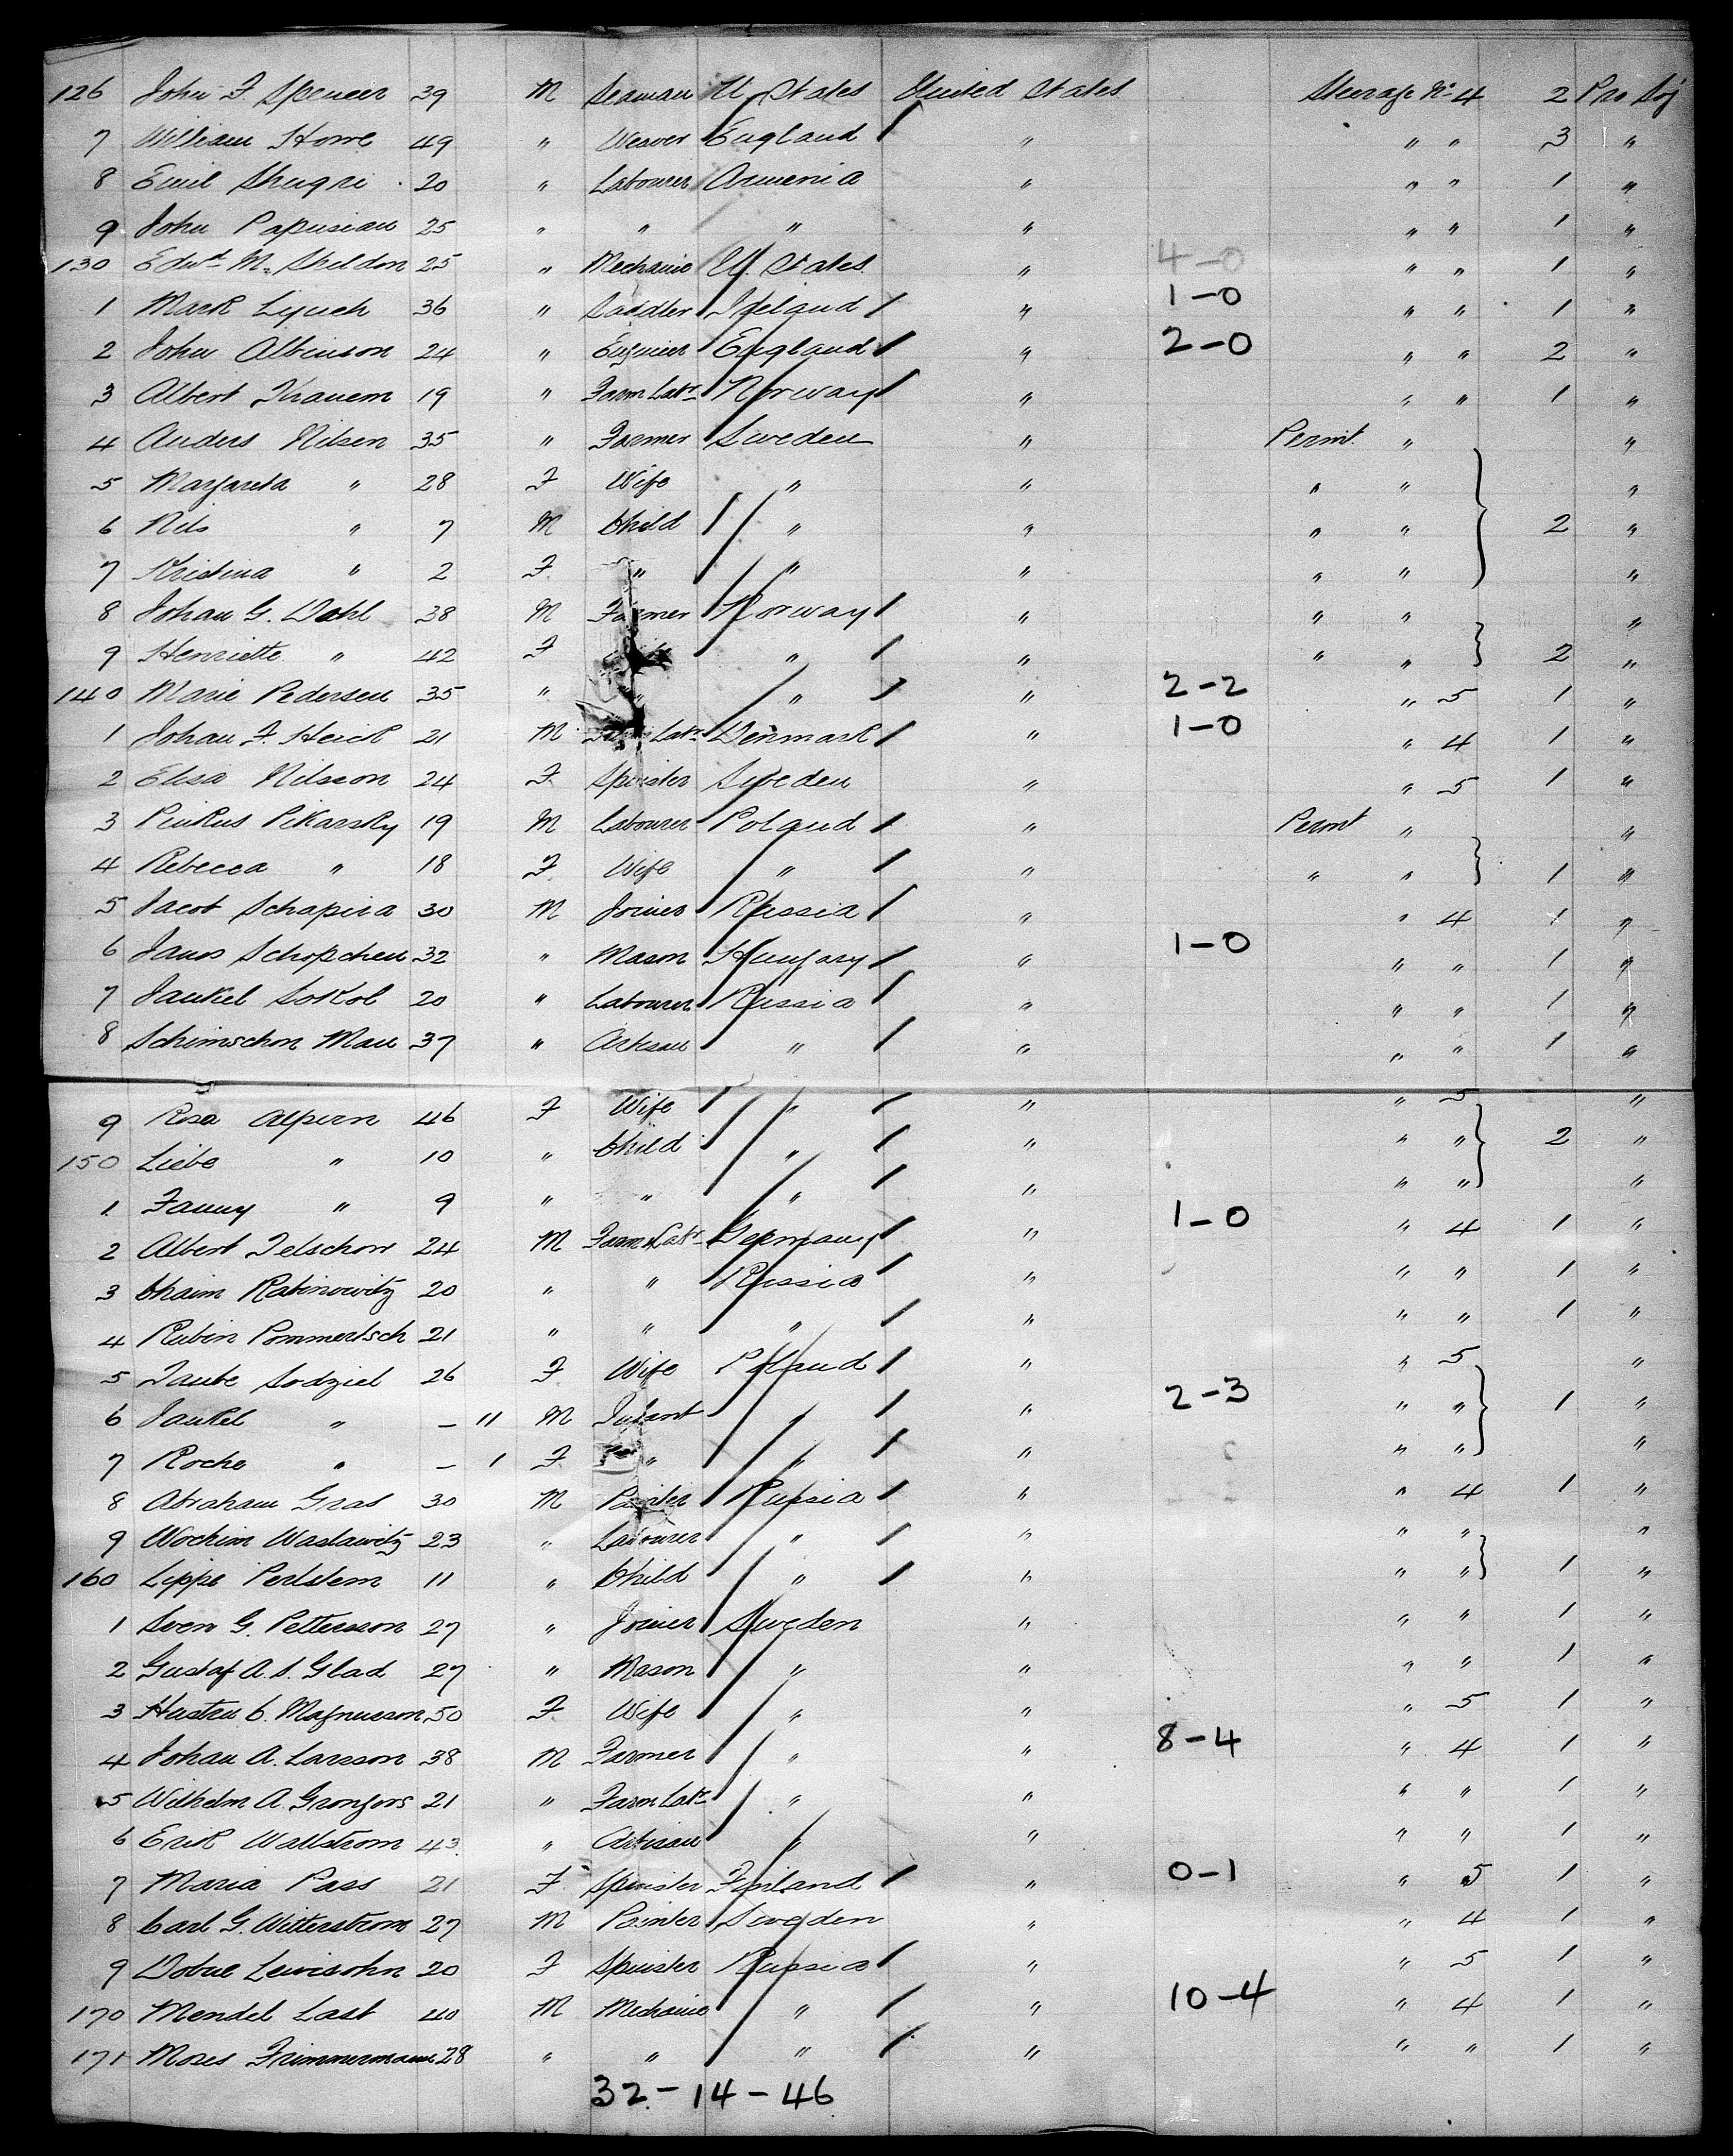 126 John F. Spencer 39 M Seaman U. States United States Steerage No 4 2 Pro Soj
7 William Howe 49 " Weaver England " " " 3 "
8 Emil Shugri 20 " Labourer Armenia " " " 1 "
9 John Papusian 25 " " " " " " 1 "
130 Edwd M. Sheldon 25 " Mechanic U. States " 4-0 " " 1 "
1 Mark Lynch 36 " Saddler Ireland " 1-0 " " 1 "
2 John Albinson 24 " Engineer England " 2-0 " " 2 "
3 Albert 19 " Farm Labr Norway " " " 1 "
4 Anders Nilsen 35 " Farmer Sweden " Permt. " "
5 Margareta " 28 F Wife " " " " "
6 Nils " 7 M Child " " " " 2 "
7 Kristina " 2 F " " " " " "
8 Johan G. Dahl 38 M Farmer Norway " " " "
9 Henriette " 42 F " " " " 2 "
140 Marie Pedersen 35 " " " " 2-2 " 5 1 "
1 Johan F. Heick 21 M Labr Denmark " 1-0 " 4 1 "
2 Elisa Nilsson 24 F Spinster Sweden " " 5 1 "
3 Pinkus Pikarsky 19 M Labourer Poland " Permt " "
4 Rebecca " 18 F Wife " " " " 1 "
5 Jacob Schapira 30 M Joiner Russia " " 4 1 "
6 Janos Schopchen 32 " Mason Hungary " 1-0 " " 1 "
7 Jankel Sokol 20 " Labourer Russia " " " 1 "
8 Schimschon Man 37 " Artsan " " " " 1 "
9 Rosa Alpern 46 F Wife " " " 5 "
150 Liebe " 10 " Child " " " " 2 "
1 Fanny " 9 " " " " " " "
2 Albert Telschow 24 M Farm Labr Germany " 1-0 " 4 1 "
3 Chaim Rabinowitz 20 " " Russia " " " 1 "
4 Rubin Pommertsch 21 " " " " " " 1 "
5 Taube Sodziel 26 F Wife Poland " " 5 "
6 Jankel " - 11 M Infant " 2-3 " " 1 "
7 Roche " - 1 F " " " " " "
8 Abraham Gras 30 M Painter Russia " " 4 1 "
9 Wochim Waslawitz 23 " Labourer " " " " "
160 Lippe Perlstem 11 " Child " " " " 1 "
1 Sven G. Pettersson 27 " Joiner Sweden " " " 1 "
2 Gustaf A. S. Glad 27 " Mason " " " " 1 "
3 C. Magnusson 50 F Wife " " " 5 1 "
4 Johan A. Larsson 38 M Farmer " " 8-4 " 4 1 "
5 Wilhelm A. Grongors 21 " Farm Labr " " " " 1 "
6 Erik Wallstrom 43 " Artisan " " " " 1 "
7 Maria Pass 21 F Spinster Finland " 0-1 " 5 1 "
8 Carl G. Witterstrom 27 M Painter Sweden " " 4 1 "
9 Dobue Lewisohn 20 F Spinster Russia " " 5 1 "
170 Mendel Last 40 M Mechanic " " 10-4 " 4 1 "
171 Moses Frimmermann 28 " " " " " " 1 "
32-14-46